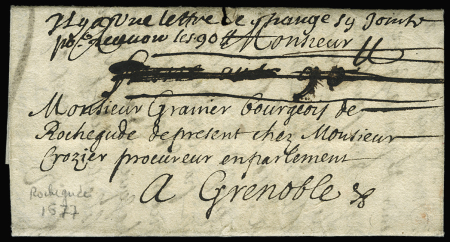 Il y a une lettre de change sy jointe
po.r les 90 ₶ Monsieur
90 ₶
Monsieur Granier bourgeois de
Rochegude de present chez Monsieur
Crozier procureur en parlement
A Grenoble
Rochegude
1677